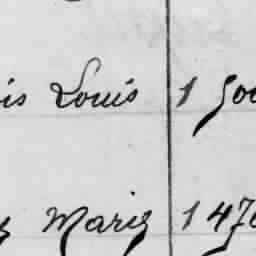 is Louis 1 500
Marie 1 470